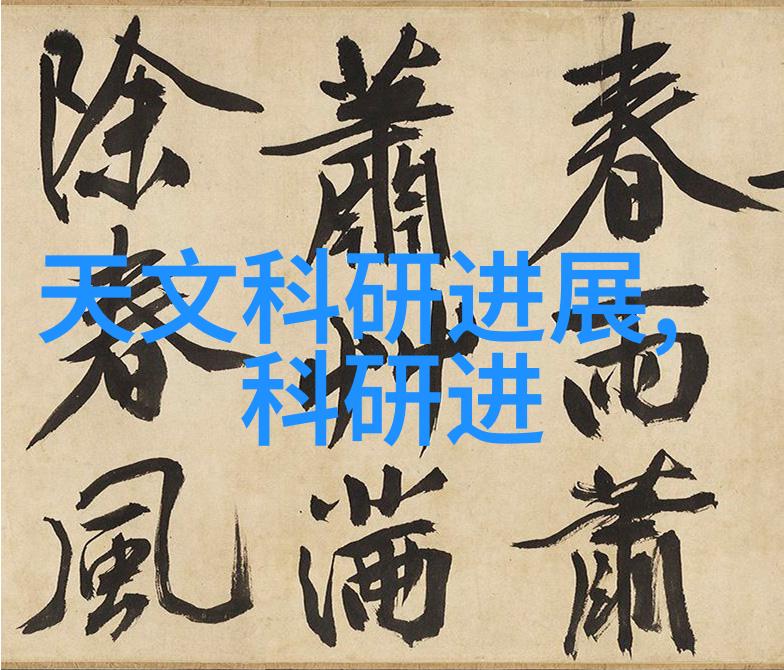 春雨蕭
蕭艸滿
除春風
天文科研进展,
科研进